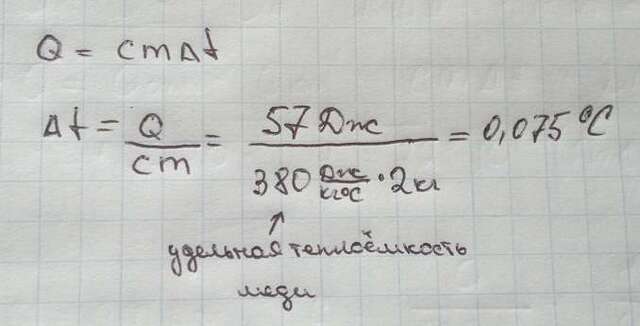 Q = cmΔt
Δt = Q/cm = 57 Дж / 380 Дж/кг°С · 2кг = 0,075 °С
↑
удельная теплоёмкость
меди